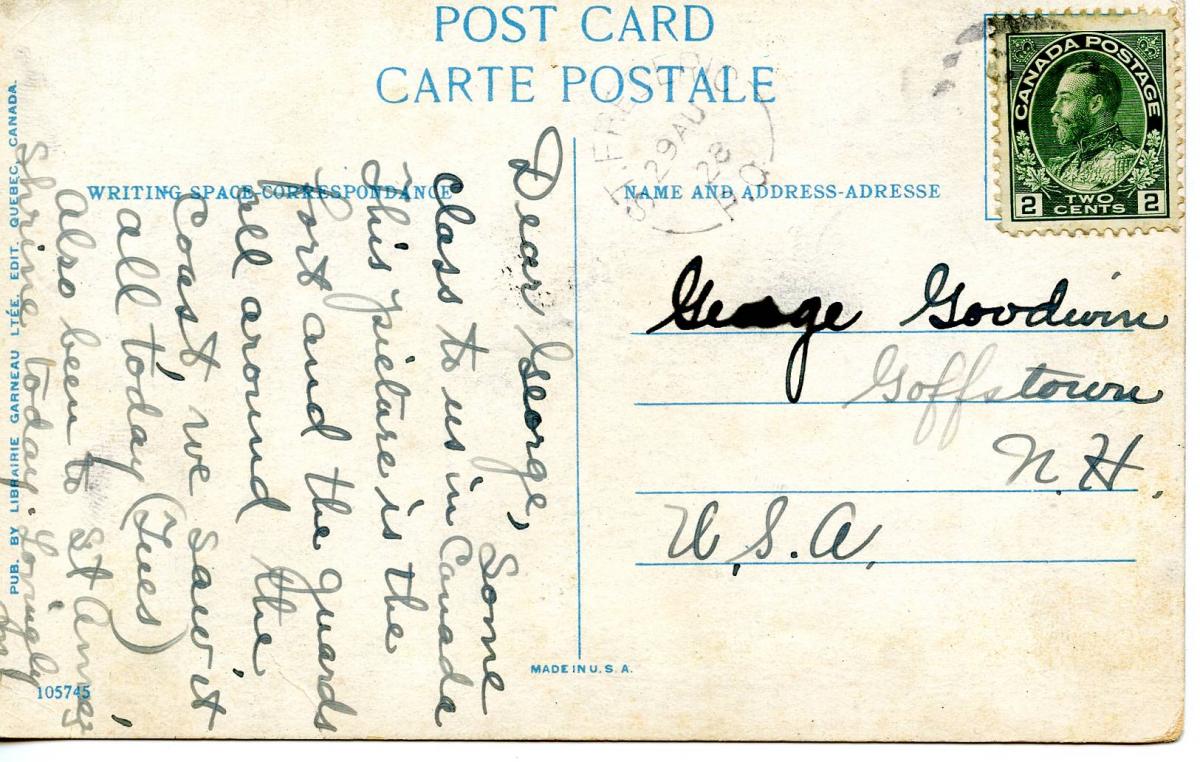 POST CARD
CARTE POSTALE
CANADA POSTAGE
2 TWO CENTS 2
29 AU
28
P.Q
WRITING SPACE-CORRESPONDANCE
NAME AND ADDRESS-ADRESSE
Dear George, Some
class to us in Canada
This picture is the
Fort and the guards
all around the
Coast, we saw it
all today (Tues)
also been to St Annes,
Shrine today. Lovingly
George Goodwin
Goffstown
N.H.
U.S.A.
MADE IN U.S.A.
PUB. BY LIBRAIRIE GARNEAU LTÉE. EDIT. QUEBEC, CANADA.
105745